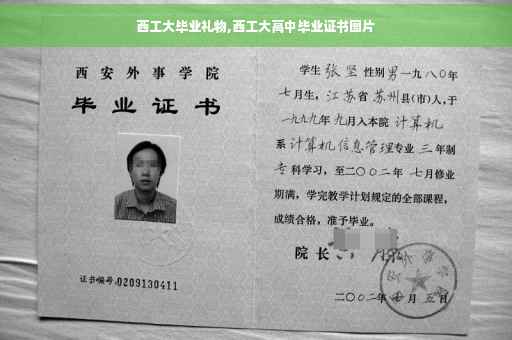 西工大毕业礼物,西工大高中毕业证书图片
西安外事学院
毕业证书
证书编号:0209130411
学生 张坚 性别 男 一九八〇年
七月生,江苏省苏州县(市)人,于
一九九九年九月入本院 计算机
系 计算机信息管理 专业 三 年制
专科学习,至二〇〇二年 七月修业
期满,学完教学计划规定的全部课程,
成绩合格,准予毕业。
院长
二〇〇二年 月五日